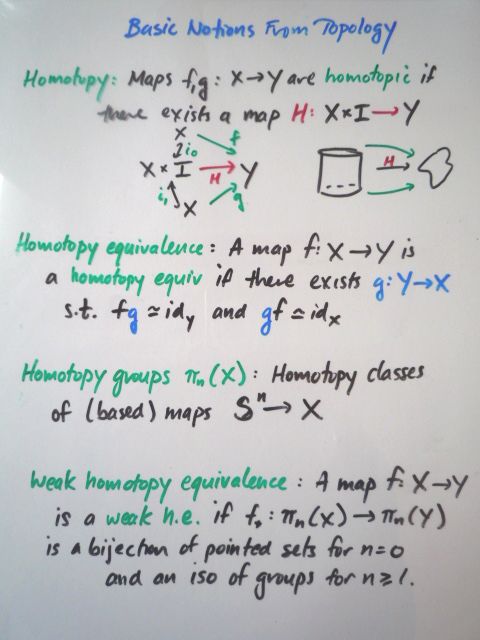 Basic Notions From Topology
Homotopy: Maps f,g: X→Y are homotopic if
there exists a map H: X×I→Y
X f
i₀
X × I H Y
i₁ g
X
H
Homotopy equivalence: A map f: X→Y is
a homotopy equiv if there exists g: Y→X
s.t. fg ≃ id_Y and gf ≃ id_X
Homotopy groups πₙ(X): Homotopy classes
of (based) maps Sⁿ → X
Weak homotopy equivalence: A map f: X→Y
is a weak h.e. if f_*: πₙ(X) → πₙ(Y)
is a bijection of pointed sets for n=0
and an iso of groups for n≥1.